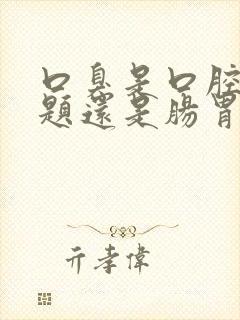 口臭是口腔
題還是腸胃
亓孝偉